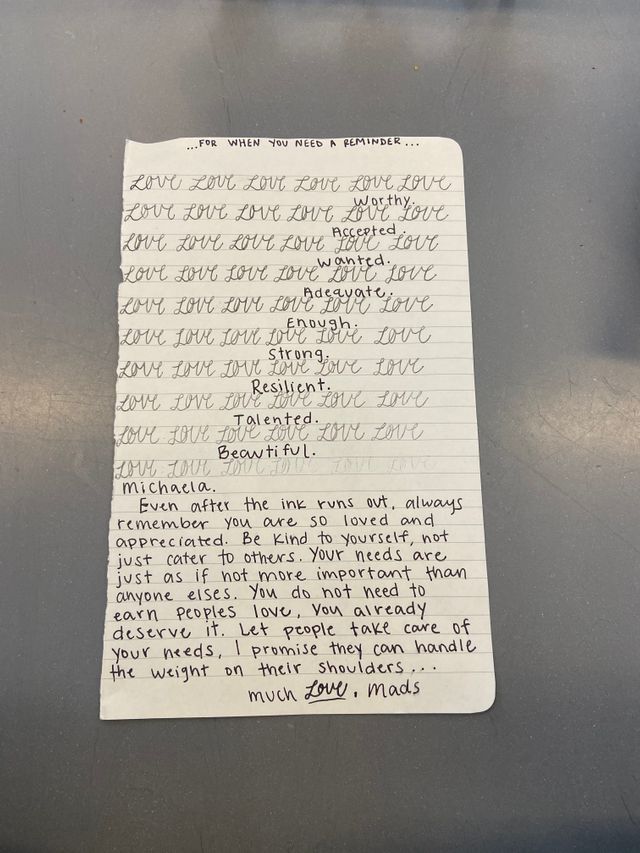 ...FOR WHEN YOU NEED A REMINDER...
Love Love Love Love Love Love
Worthy.
Love Love Love Love Love Love
Accepted.
Love Love Love Love Love Love
Wanted.
Love Love Love Love Love Love
Adequate.
Love Love Love Love Love Love
Enough.
Love Love Love Love Love Love
Strong.
Love Love Love Love Love Love
Resilient.
Love Love Love Love Love Love
Talented.
Love Love Love Love Love Love
Beautiful.
Love Love Love Love Love Love
Michaela.
Even after the ink runs out, always
remember you are so loved and
appreciated. Be kind to yourself, not
just cater to others. Your needs are
just as if not more important than
anyone elses. You do not need to
earn peoples love, you already
deserve it. Let people take care of
your needs, I promise they can handle
the weight on their shoulders...
much Love, Mads